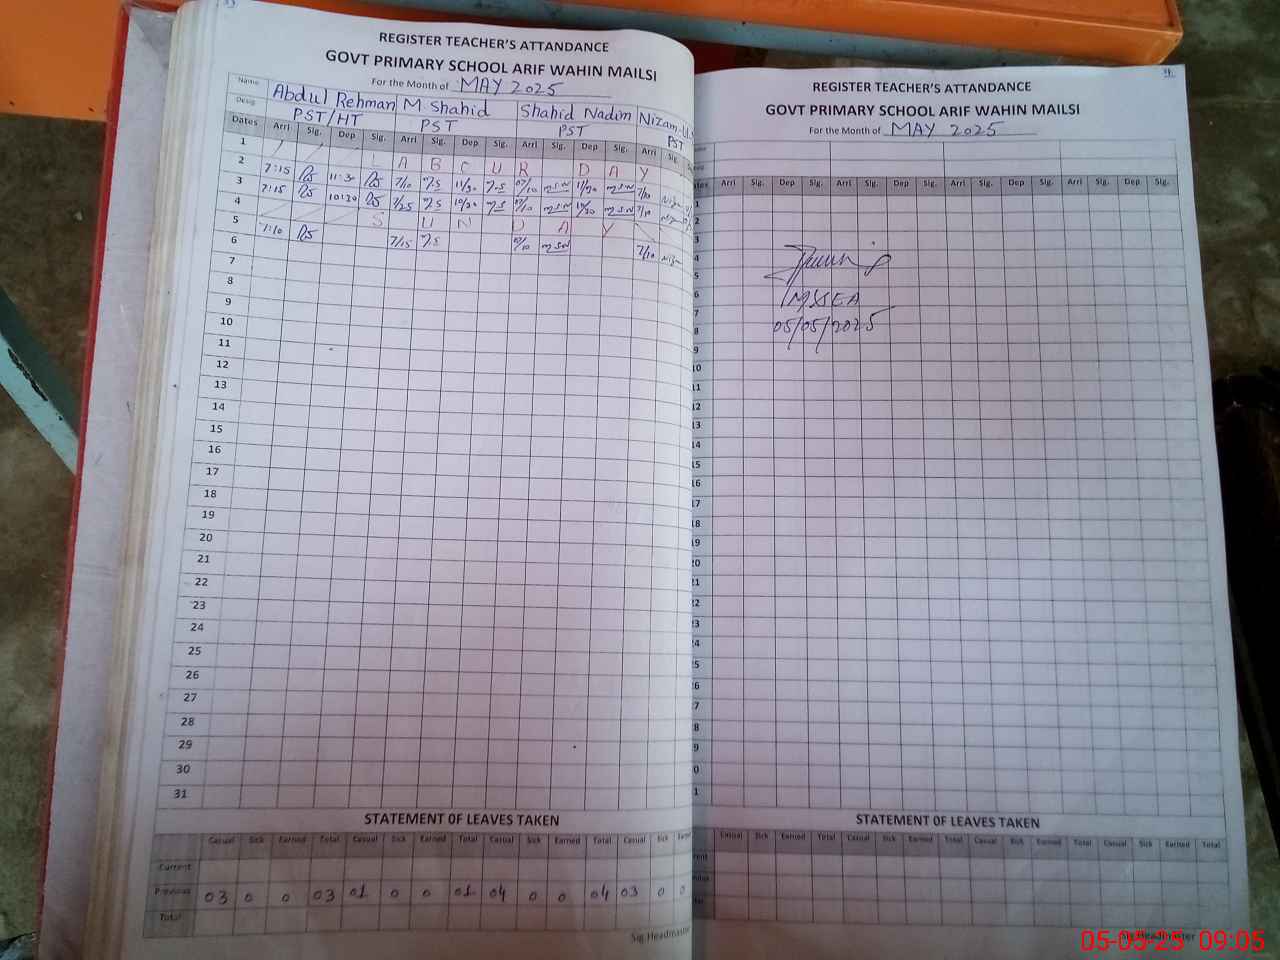 33
REGISTER TEACHER'S ATTANDANCE
GOVT PRIMARY SCHOOL ARIF WAHIN MAILSI
For the Month of MAY 2025
Name Abdul Rehman M Shahid Shahid Nadim
Desig PST/HT PST PST PST
Dates Arri Sig. Dep Sig. Arri Sig. Dep Sig. Arri Sig. Dep Sig. Arri Sig.
1 L A B O U R D A Y
2 7:15 11:30 7/10 11/30 07/10 11/30 7/10
3 7:15 10:30 7/25 10/30 07/10 10/30 7/10
4 S U N D A Y
5 7:10 7/15 07/10 7/10
6
7
8
9
10
11
12
13
14
15
16
17
18
19
20
21
22
23
24
25
26
27
28
29
30
31
STATEMENT OF LEAVES TAKEN
Casual Sick Earned Total Casual Sick Earned Total Casual Sick Earned Total Casual Sick Earned
Current
Previous 03 0 0 03 01 0 0 01 04 0 0 04 03 0 0
Total
Sig Headmaster
REGISTER TEACHER'S ATTANDANCE
GOVT PRIMARY SCHOOL ARIF WAHIN MAILSI
For the Month of MAY 2025
Arri Sig. Dep Sig. Arri Sig. Dep Sig. Arri Sig. Dep Sig. Arri Sig. Dep Sig.
05/05/2025
STATEMENT OF LEAVES TAKEN
Casual Sick Earned Total Casual Sick Earned Total Casual Sick Earned Total Casual Sick Earned Total
Sig Headmaster
05-05-25 09:05